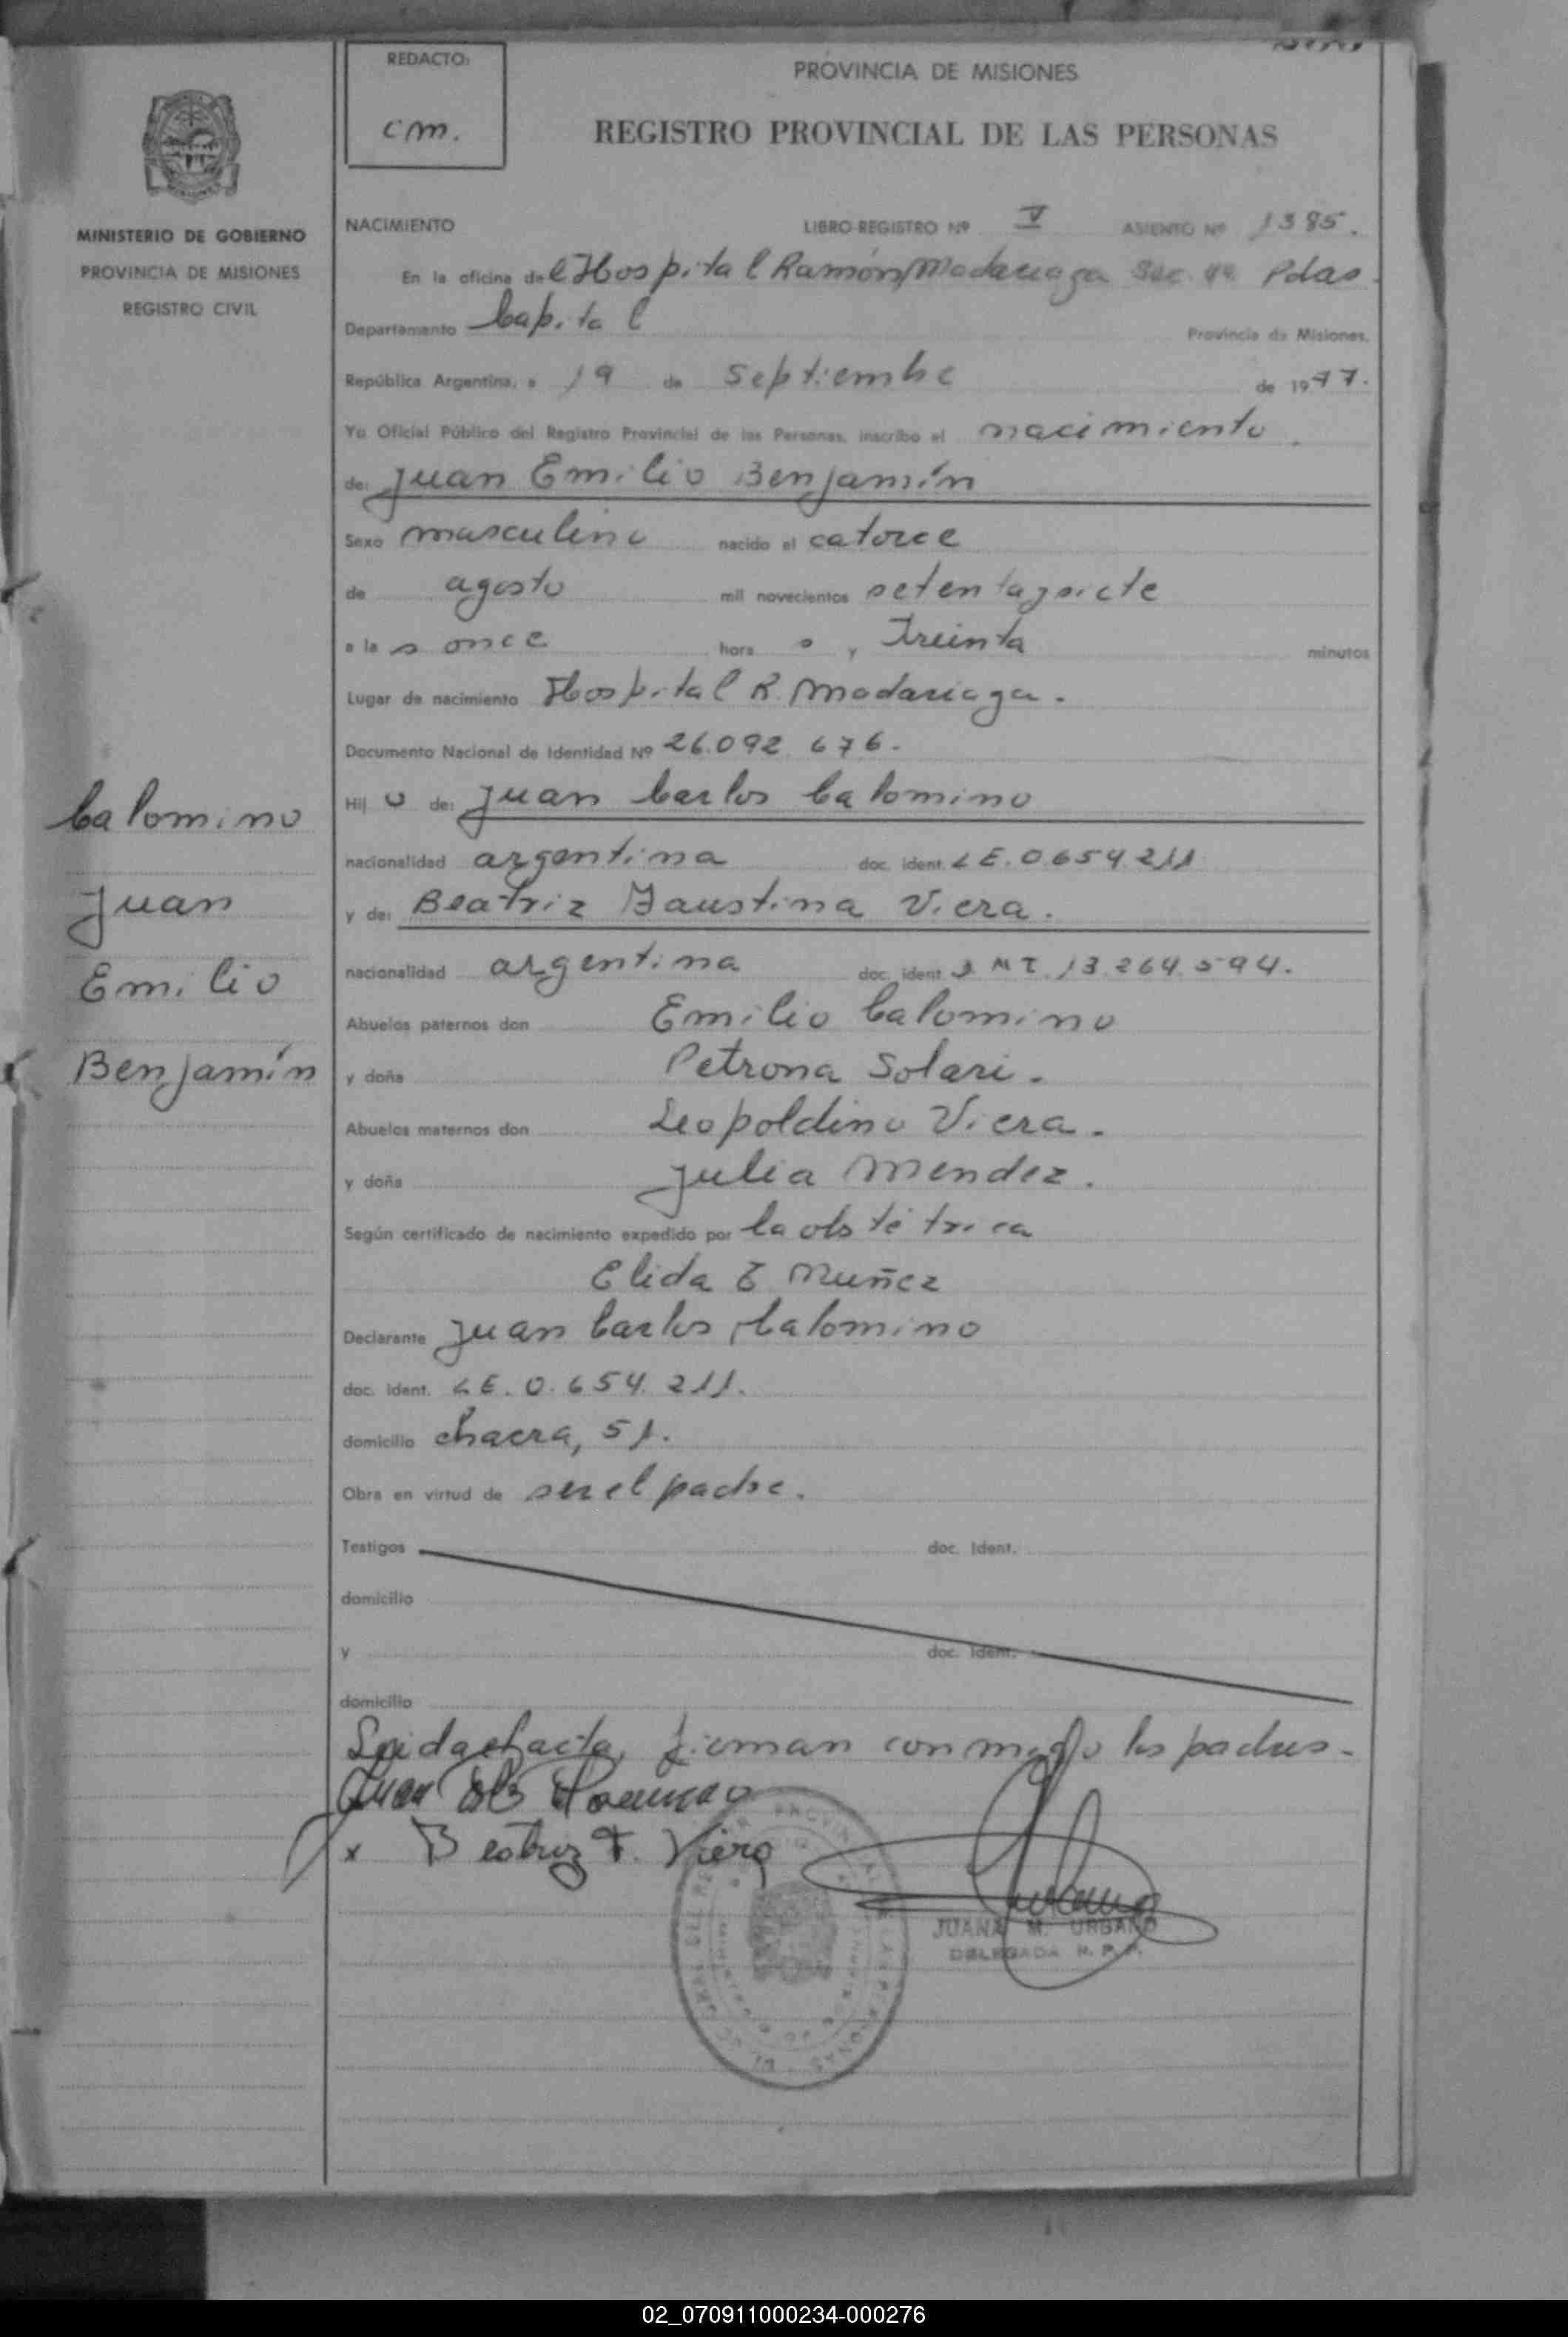 REDACTO:
cm.
PROVINCIA DE MISIONES
REGISTRO PROVINCIAL DE LAS PERSONAS
MINISTERIO DE GOBIERNO
PROVINCIA DE MISIONES
REGISTRO CIVIL
Calomino
Juan
Emilio
Benjamín
NACIMIENTO LIBRO-REGISTRO Nº V ASIENTO Nº 1385.
En la oficina del Hospital Ramón Madariaga Sec. 4ª Pdas.
Departamento Capital Provincia de Misiones,
República Argentina, a 19 de Septiembre de 1977.
Yo Oficial Público del Registro Provincial de las Personas, inscribo el nacimiento.
de: Juan Emilio Benjamín
Sexo masculino nacido el catorce
de agosto mil novecientos setentaysiete
a las once horas y treinta minutos
Lugar de nacimiento Hospital R. Madariaga.
Documento Nacional de Identidad Nº 26.092.676.
Hijo de: Juan Carlos Calomino
nacionalidad argentina doc. ident. LE. 0.654.211
y de: Beatriz Faustina Viera.
nacionalidad argentina doc. ident. DNI. 13.264.594.
Abuelos paternos don Emilio Calomino
y doña Petrona Solari.
Abuelos maternos don Leopoldino Viera.
y doña Julia Mendez.
Según certificado de nacimiento expedido por la obstétrica
Elida E Muñez
Declarante Juan Carlos Calomino
doc. ident. LE. 0.654.211.
domicilio chacra, 51.
Obra en virtud de ser el padre.
Testigos doc. Ident.
domicilio
y doc. Ident.
domicilio
Leida el acta, firman conmigo los padres.
x Beatriz F. Viera
JUANA M. URBANO
DELEGADA R. P. P.
02_070911000234-000276